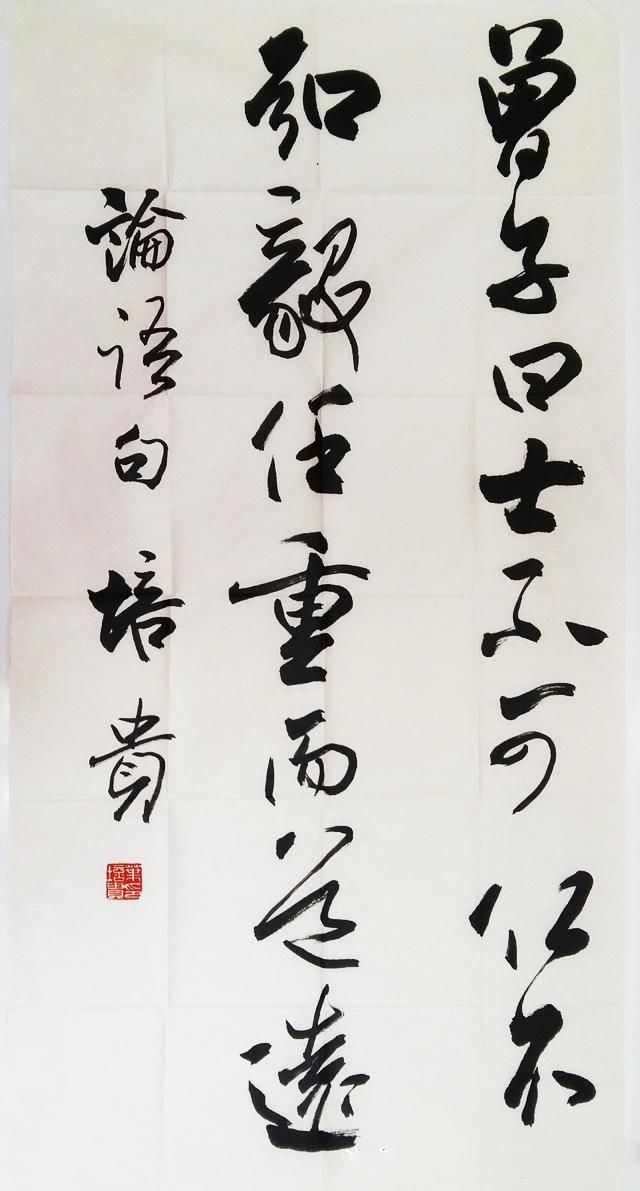 曾子曰士不可以不
弘毅任重而道遠
論語句 培貴
葉印培貴